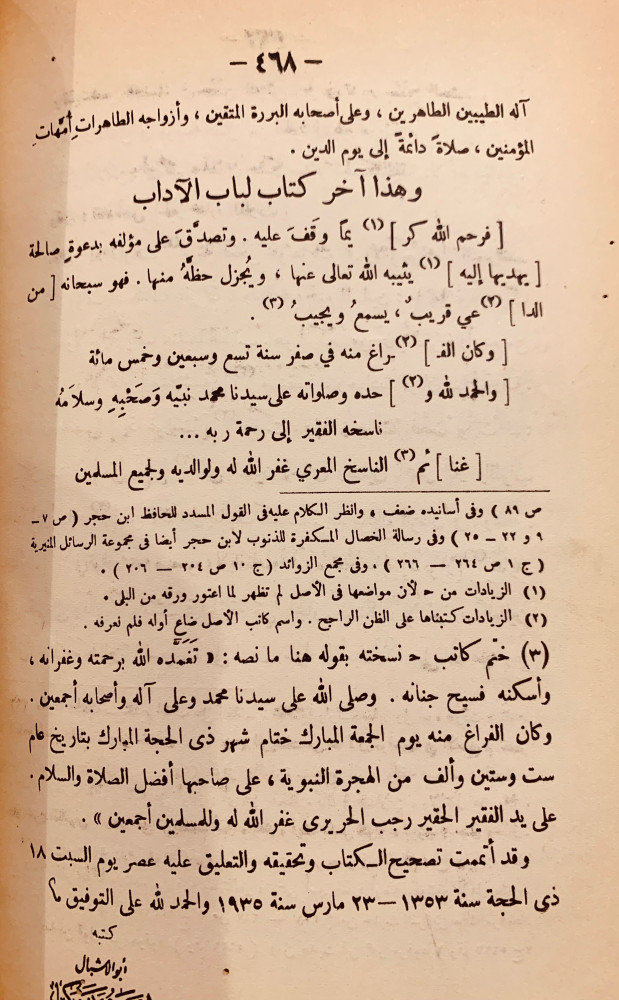 — ٤٦٨ —
آله الطيبين الطاهرين ، وعلى أصحابه البررة المتقين ، وأزواجه الطاهرات أمَّهات
المؤمنين ، صلاةً دائمةً إلى يوم الدين .
وهذا آخر كتاب لباب الآداب
[ فرحم الله كر ] (١) يمًا وقَفَ عليه . وتصدَّقَ على مؤلفه بدعوةٍ صالحة
[ يهديها إليه ] (١) يثيبه الله تعالى عنها ، ويُجزل حظَّهُ منها . فهو سبحانه [ من
الدا ] (٢) عي قريبٌ ، يسمعُ ويجيبُ (٣) .
[ وكان الفـ ] (٢) ـراغ منه في صفر سنة تسع وسبعين وخمس مائة
[ والحمد لله و (٢) ] حده وصلواته على سيدنا محمد نبيّه وَصَحْبِهِ وسلامُه
ناسخه الفقير إلى رحمة ربه ...
[ غنا ] ئم (٣) الناسخ المعري غفر الله له ولوالديه ولجميع المسلمين
ص ٨٩ ) وفى أسانيده ضعف ، وانظر الكلام عليه فى القول المسدد للحافظ ابن حجر ( ص ٧ ــ
٩ و ٢٢ ــ ٢٥ ) وفى رسالة الخصال المكفرة للذنوب لابن حجر أيضا فى مجموعة الرسائل المنيرية
( ج ١ ص ٢٦٤ — ٢٦٦ ) ، وفى مجمع الزوائد ( ج ١٠ ص ٢٠٤ — ٢٠٦ ) .
(١) الزيادات من ح لأن مواضعها فى الأصل لم تظهر لما اعتور ورقه من البلى .
(٢) الزيادات كتبناها على الظن الراجح . واسم كاتب الأصل ضاع أوله فلم نعرفه .
(٣) ختم كاتب ح نسخته بقوله هنا ما نصه : « تَغَمَّده الله برحمته وغفرانه ،
وأسكنه فسيح جنانه . وصلى الله على سيدنا محمد وعلى آله وأصحابه أجمعين .
وكان الفراغ منه يوم الجمعة المبارك ختام شهر ذى الحجة المبارك بتاريخ عام
ست وستين وألف من الهجرة النبوية ، على صاحبها أفضل الصلاة والسلام .
على يد الفقير الحقير رجب الحريرى غفر الله له وللمسلمين أجمعين » .
وقد أتممت تصحيح الكتاب وتحقيقه والتعليق عليه عصر يوم السبت ١٨
ذى الحجة سنة ١٣٥٣ — ٢٣ مارس سنة ١٩٣٥ والحمد لله على التوفيق
كتبه
أبو الأشبال